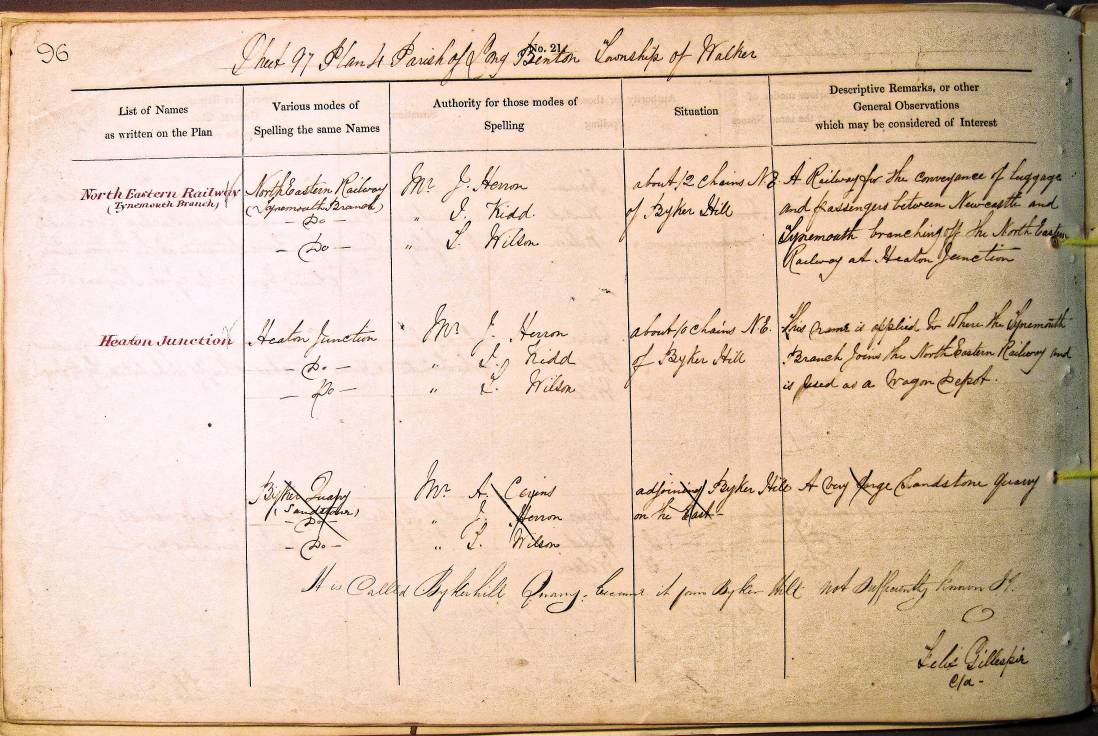 96
No. 21
Sheet 97 Plan 4 Parish of Long Benton Township of Walker
List of Names
as written on the Plan
Various modes of
Spelling the same Names
Authority for those modes of
Spelling
Situation
Descriptive Remarks, or other
General Observations
which may be considered of Interest
North Eastern Railway
(Tynemouth Branch)
North Eastern Railway
(Tynemouth Branch)
- Do -
- Do -
Mr J. Herron
" J. Kidd
" T. Wilson
about 12 chains N.E.
of Byker Hill
A Railway for the conveyance of Luggage
and passengers between Newcastle and
Tynemouth branching off the North Eastern
Railway at Heaton Junction
Heaton Junction
Heaton Junction
- Do -
- Do -
Mr J. Herron
" J. Kidd
" T. Wilson
about 10 chains N.E.
of Byker Hill
This name is applied to where the Tynemouth
Branch Joins the North Eastern Railway and
is used as a Wagon Depot.
Byker Quarry
(Sandstone)
- Do -
- Do -
Mr A.
" J. Herron
" T. Wilson
adjoining Byker Hill
on the East -
A very large Sandstone Quarry
It is Called Bykerhill Quarry, because it Byker Hill not Sufficiently known
Felix Gillespie
c/a -